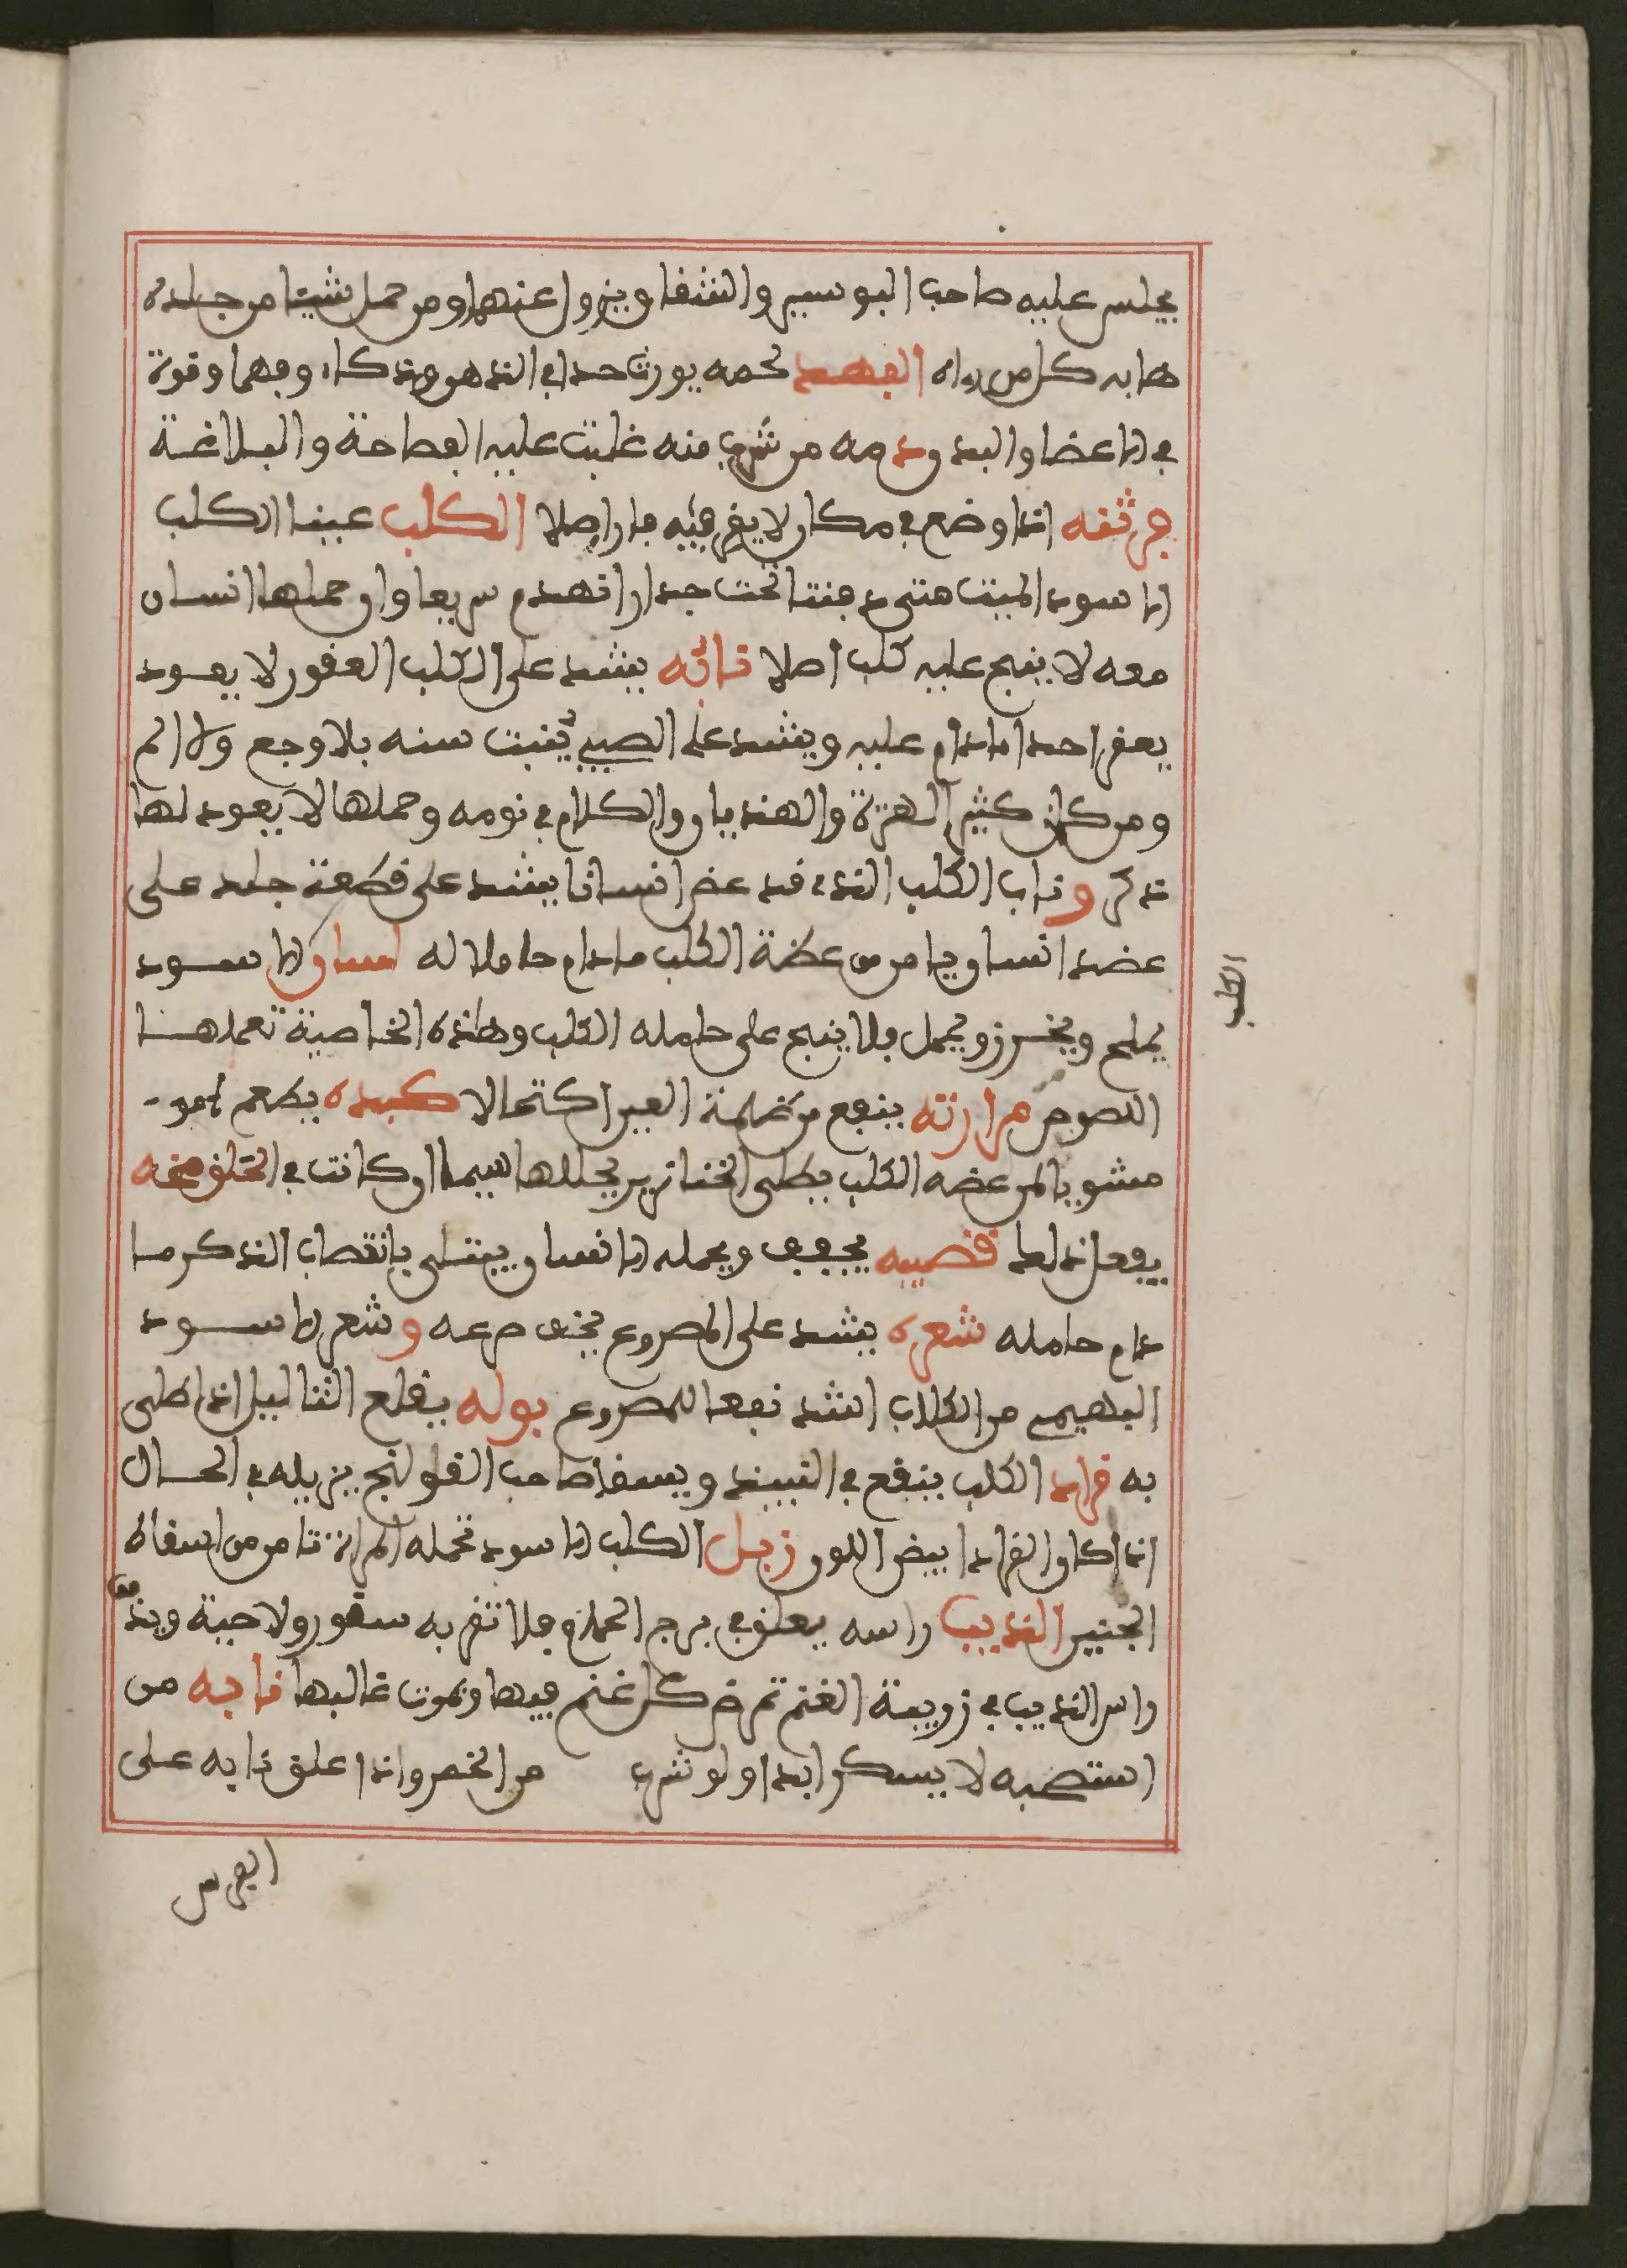 يجلس عليه صاحب البوسير والشفاو يزول عنهما ومن حمل شيئا من جلده
هابه كل من رءاه الفهد لحمه يورث حدا في الذهن وذكاء وفهما وقوة
في الاعضا والبد ودمه من شرب منه غلبت عليه الفصاحة والبلاغة
برثنه اذا وضع في مكان لا يقر فيه فار اصلا الكلب عينا الكلب
الاسود الميت متى دفنتا تحت جدار انهدم سريعا وان حملها انسان
معه لا ينبح عليه كلب اصلا نابه يشد على الكلب العقور لا يعود
يعقر احدا مادام عليه ويشد على الصبي ينبت سنه بلا وجع ولا الم
ومن كان كثير الهرة والهذيان والكلام في نومه وحملها لا يعود لها
ذكر وناب الكلب الذي قد عض انسانا يشد على قطعة جلد على
عضد انسان يامن من عضة الكلب مادام حاملا له لسان الاسود
يملح ويخرز ويحمل فلا ينبح على حامله الكلب وهذه الخاصية تعملها
اللصوص مرارته ينفع من ظلمة العين اكتحالا كبده يطعم
مشويا لمن عضه الكلب يطلى الخنازير يحللها سيما ان كانت في الحلق مخه
يفعل ذلك قضيبه يجفف ويحمله الانسان يبتلى بانقصاب الذكر ما
دام حامله شعره يشد على المصروع يخف صرعه وشعر الاسود
البهيمي من الكلاب اشد نفعا للمصروع بوله يقلع الثئاليل اذا طلى
به قراد الكلب ينقع في النبيذ ويسقا صاحب القولنج يزيله في الحال
اذا كان القراد ابيض اللون زبل الكلب الاسود تحمله المراة تامن من اسقاط
الجنين الذيب راسه يعلق في برج الحمام فلا تقربه سنور ولا حية
راس الذيب في زريبة الغنم تمرض كل غنم فيها وتموت غالبها نابه من
استصحبه لا يسكر ابدا ولو شرب من الخمر واذا علق نابه على
الفرس
الكلب